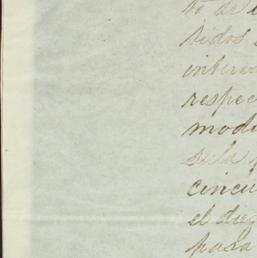 to de
tidos
interi
respec
modi
sula
cincu
el die
para